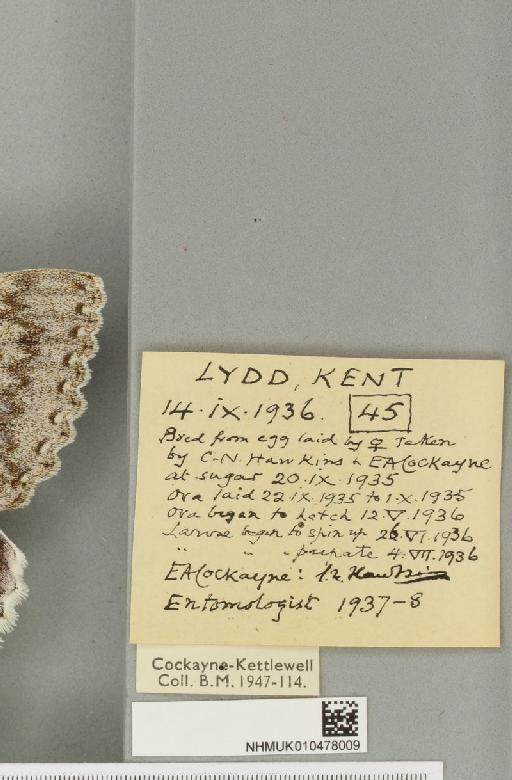 LYDD, KENT
14·IX·1936. 45
Bred from egg laid by ♀ Taken
by C·N. Hawkins & EACockayne
at sugar 20·IX·1935
Ova laid 22·IX·1935 to 1·X·1935
Ova began to hatch 12·VI·1936
Larvae began to spin up 26·VI·1936
" " " pupate 4·VII·1936
EACockayne: Hawkins
Entomologist 1937-8
Cockayne-Kettlewell
Coll. B.M. 1947-114.
NHMUK010478009